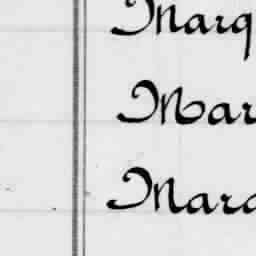 Marq
Mar
Mara